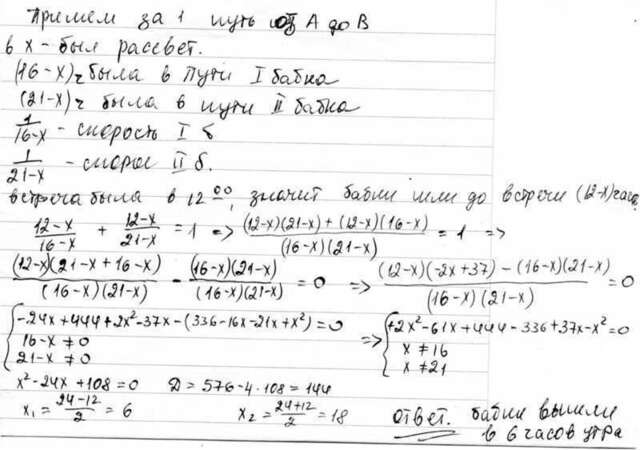 Примем за 1 путь от А до В
в х - был рассвет.
(16-х)ч была в пути I бабка
(21-х)ч была в пути II бабка
1/(16-х) - скорость I б
1/(21-х) - скорос II б.
встреча была в 12⁰⁰, значит бабки шли до встречи (12-х)часа
(12-х)/(16-х) + (12-х)/(21-х) = 1 => ((12-х)(21-х)+(12-х)(16-х))/((16-х)(21-х)) = 1 =>
((12-х)(21-х+16-х))/((16-х)(21-х)) - ((16-х)(21-х))/((16-х)(21-х)) = 0 => ((12-х)(-2х+37)-(16-х)(21-х))/((16-х)(21-х)) = 0
{ -24х+444+2х²-37х-(336-16х-21х+х²)=0 => { +2х²-61х+444-336+37х-х²=0
16-х ≠ 0 х ≠ 16
21-х ≠ 0 х ≠ 21
х²-24х+108=0 D = 576-4·108=144
х₁ = (24-12)/2 = 6 х₂ = (24+12)/2 = 18 ответ. бабки вышли
в 6 часов утра